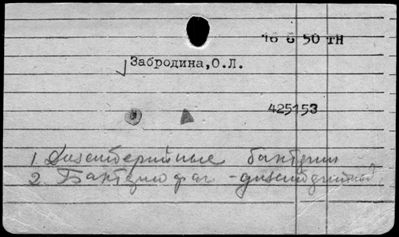 16 6 50 тн
Забродина,О.Л.
425153
1 Дизентерийные бактерии
2. Бактериофаг - дизентерийный